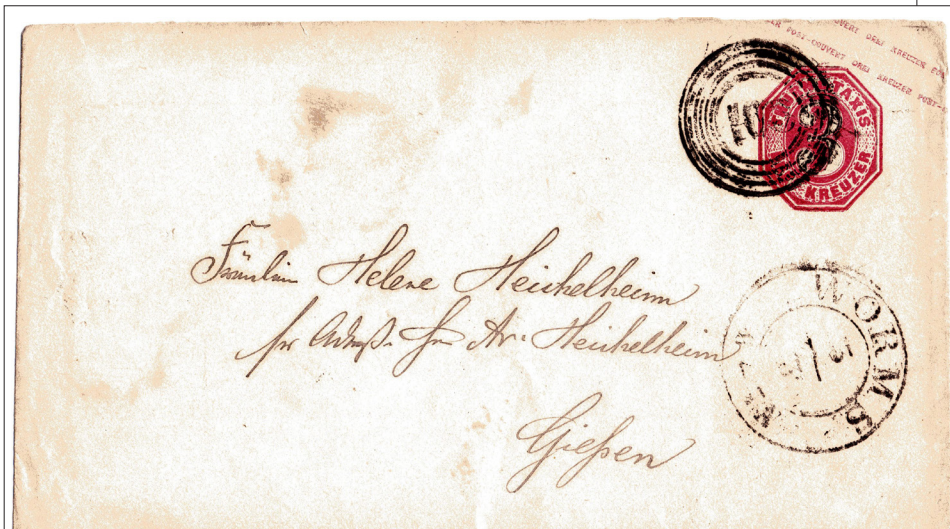 POST-COUVERT DREI KREUZER POST-
THURN TAXIS
KREUZER
Fräulein Helene Heichelheim
pr Adreß. Hn Av. Heichelheim
Gießen
WORMS